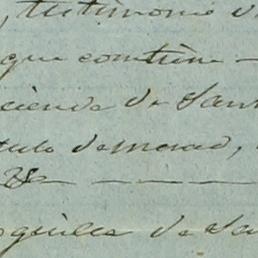 , testimonio d
que contiene —
cienda de San
tulo de merced,
28 — — —
quilla de Sa